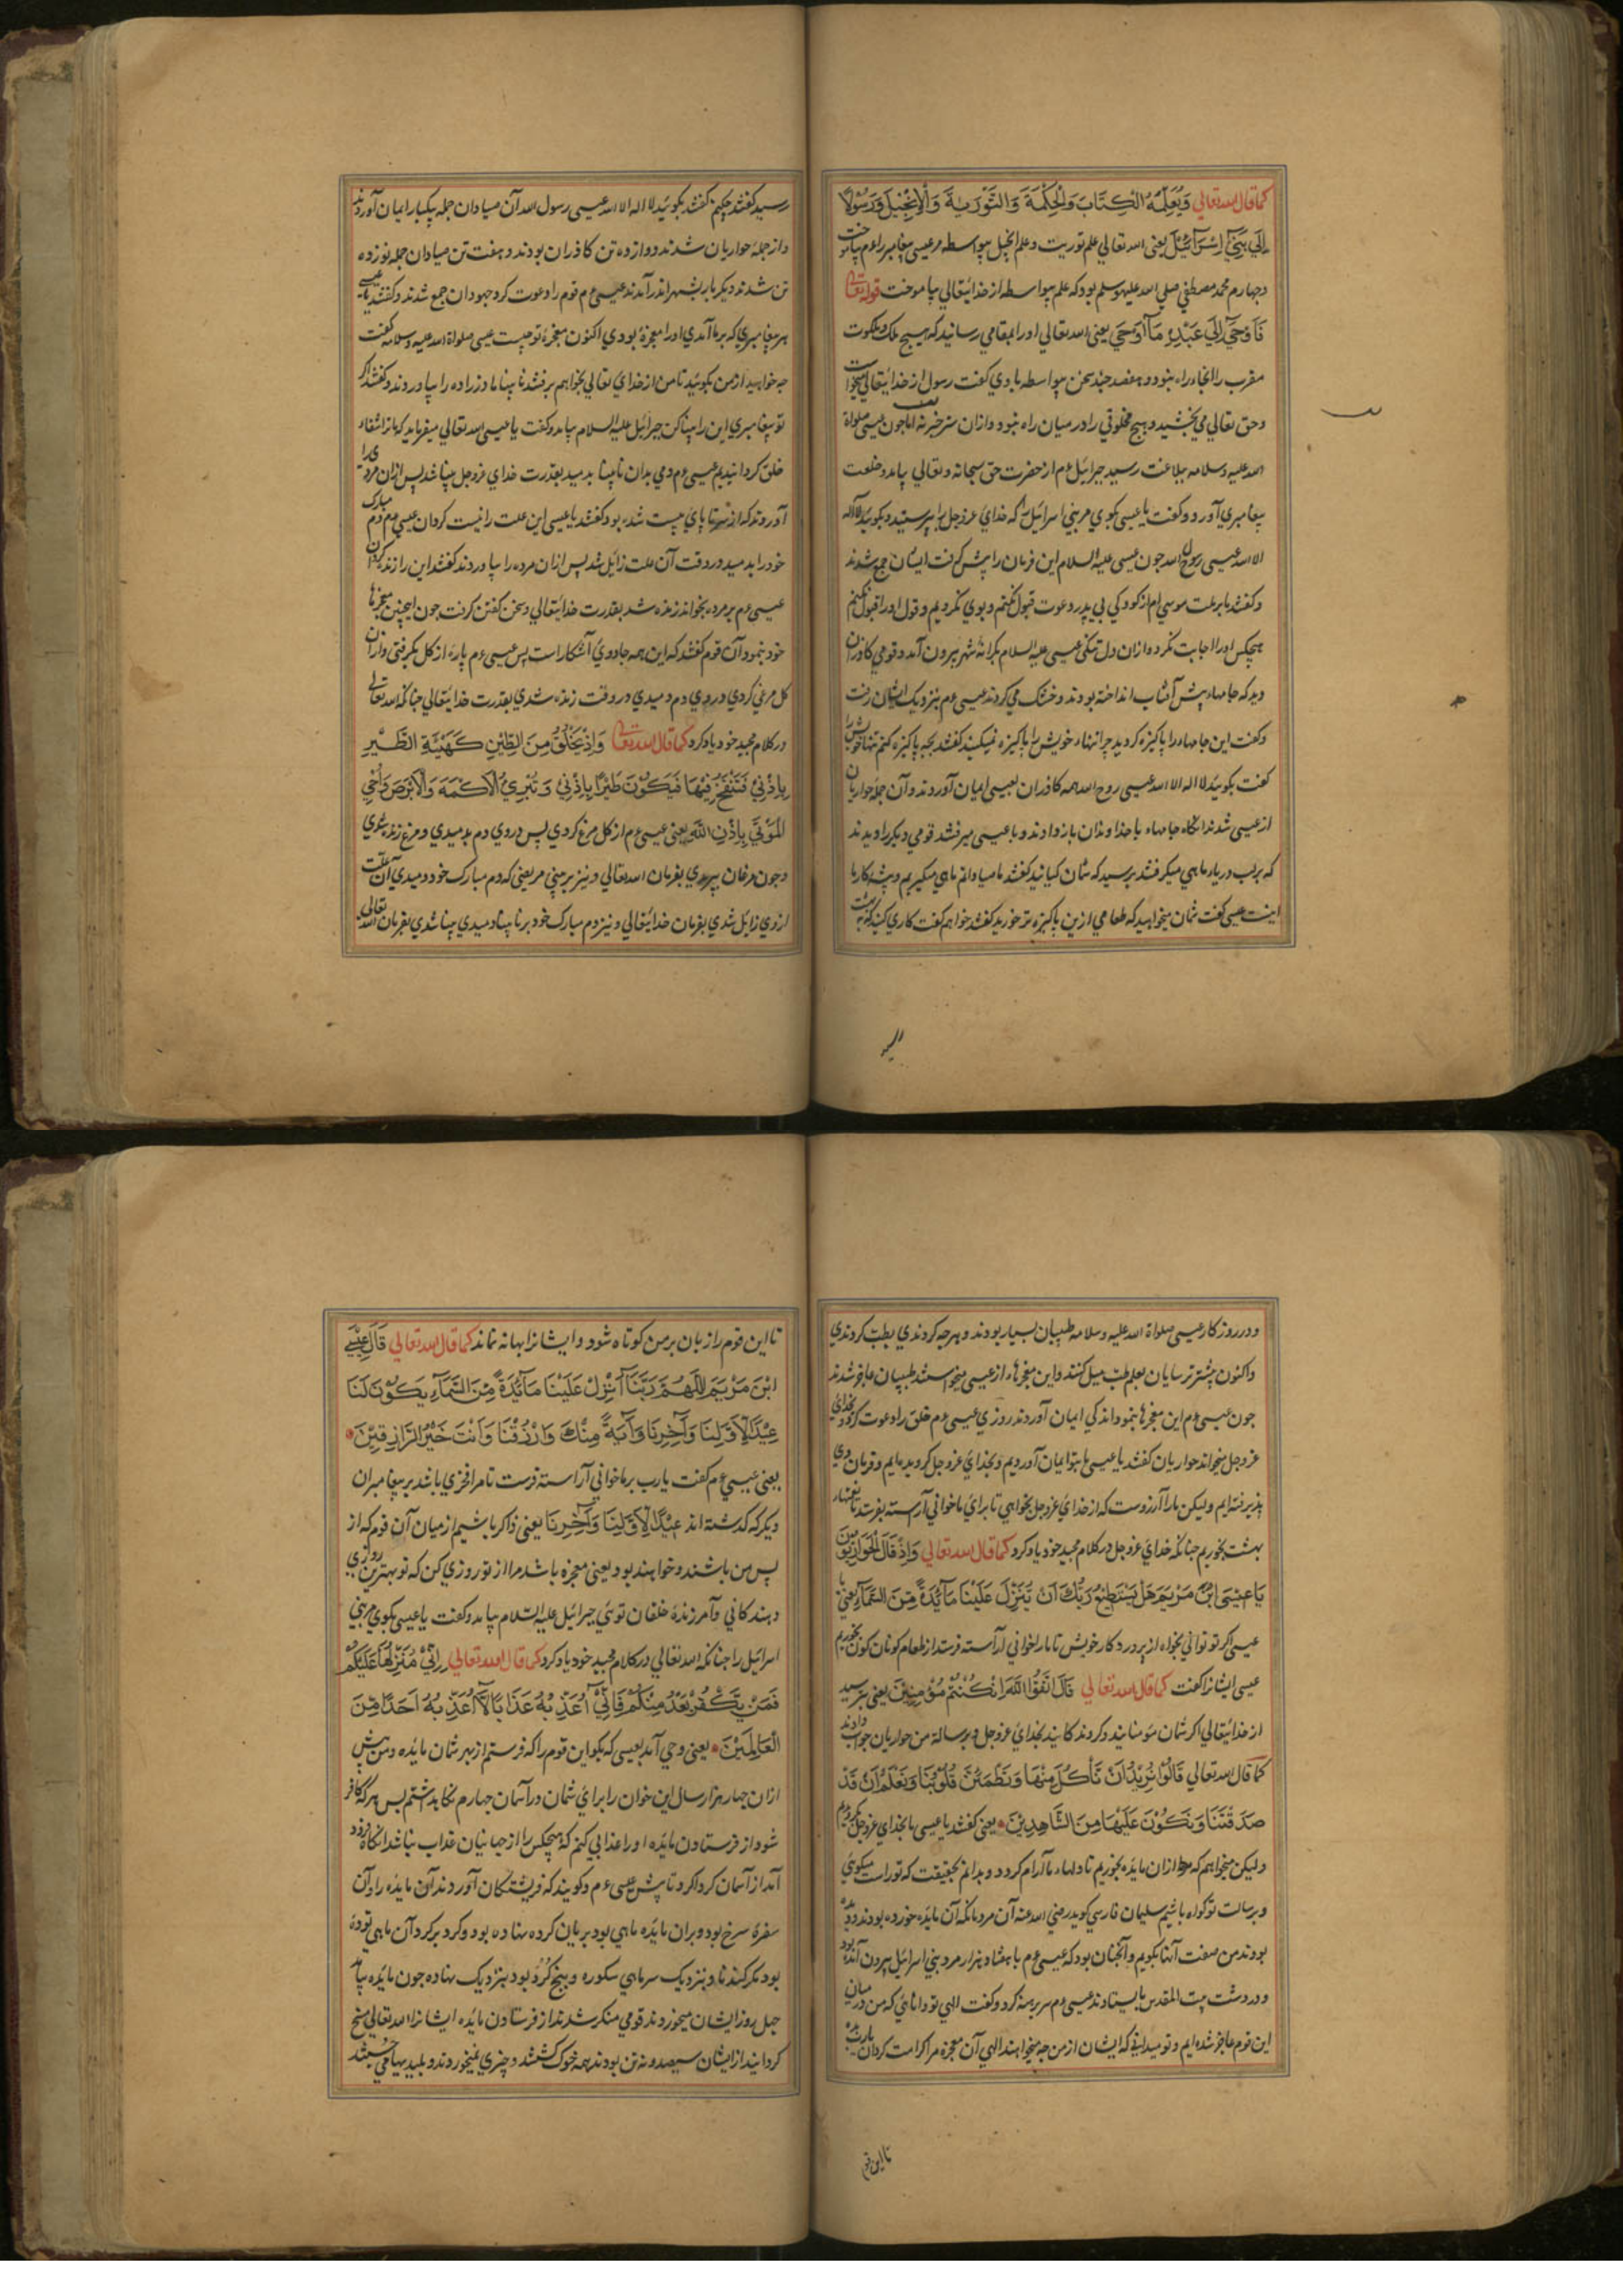 كما قال الله تعالي وَيُعَلِّمُهُ الْكِتَابَ وَالْحِكْمَةَ وَالتَّوْرٰيةَ وَالْاِنْجِيْلَ وَرَسُوْلًا
اِلٰي بَنِيْٓ اِسْرَآئِيْلَ يعني الله تعالي علم توريت و علم انجيل بيواسطه مر عيسي پيغامبر را عم بياموخت
و چهارم محمد مصطفي صلي الله عليه وسلم بود كه علم بيواسطه از خدايتعالي بياموخت قوله تعالي
فَاَوْحٰٓي اِلٰي عَبْدِهٖ مَآ اَوْحٰي يعني الله تعالي او را بمقامي رسانيد كه هيچ ملك و ملكوت
مقرب را انجا راه نبود و هفصد چند سخن بيواسطه با وي گفت رسول از خدايتعالي ميخواست
و حق تعالي مي بخشيد و هيچ مخلوقي را در ميان راه نبود و از ان سر خبر نه اما چون عيسي صلواة
الله عليه و سلامه ببلاغت رسيد جبرائيل عم از حضرت حق سبحانه و تعالي بيامد و خلعت
پيغامبري آورد و گفت يا عيسي بگوي مر بني اسرائيل را كه خداي عزوجل را بپرستيد و بگوييد لا اله
الا الله عيسي روح الله چون عيسي عليه السلام اين فرمان را پيش گرفت ايشان جمع شدند
و گفتند ما بر ملت موسي ام از كودكي بي پدر دعوت قبول نكنم و بوي نگرديم و قول او را قبول نكنم
هيچكس او را اجابت نكرد و از ان دل تنگي عيسي عليه السلام بكرانه شهر بيرون آمد و قومي كاذران
ديد كه جامهاء پيش آفتاب انداخته بودند و خشك مي كردند عيسي عم بنزديك ايشان رفت
و گفت اين جامهاء را پاكيزه كرديد چرا تنهاء خويش را پاكيزه نميكنيد گفتند بچه پاكيزه كنم تنهاء خويش را
گفت بگوييد لا اله الا الله عيسي روح الله همه كاذران بعيسي ايمان آوردند و آن جمله حواريان
از عيسي شدند انگاه جامهاء با خداوندان باز دادند و با عيسي ميرفتند قومي ديگر را ديدند
كه بر لب دريا ماهي ميگرفتند پرسيد كه شمان كيانيد گفتند ما صيادانم ماهي ميگيريم و پيشه كار ما
اينست عيسي گفت شمان ميخواهيد كه طعامي ازين پاكيزه تر خوريد گفتند خواهم گفت كاري كنيد كه به بهشت
رسيد گفتند چكنم گفتند بگوييد لا اله الا الله عيسي رسول الله آن صيادان جمله بيكبار ايمان آوردند
و از جملهٔ حواريان شدند دوازده تن كاذران بودند و هفت تن صيادان جمله نوزده
تن شدند ديگر بار بشهر اندر آمدند عيسي عم قوم را دعوت كرد جهودان جمع شدند و گفتند يا عيسي
هر پيغامبري كه بر ما آمدي او را معجزهٔ بودي اكنون معجزهٔ تو چيست عيسي صلواة الله عليه و سلامه گفت
چه خواهيد از من بگوييد تا من از خداي تعالي بخواهم برفتند نابينا مادرزاده را بياوردند و گفتند اگر
تو پيغامبري اين را بينا كن جبرائيل عليه السلام بيامد و گفت يا عيسي الله تعالي ميفرمايد كه ما ترا شفاء
خلق گردانيديم عيسي عم دمي بدان نابينا بدميد بقدرت خداي عزوجل بينا شد پس ازان مردي را
آوردند كه از سر تا پاي پيست شده بود گفتند يا عيسي اين علت را نيست گردان عيسي عم دم مبارك
خود را بدميد در وقت آن علت زائل شد پس ازان مرده را بياوردند گفتند اين را زنده گردان
عيسي عم بر مرده بخواند زنده شد بقدرت خدايتعالي و سخن گفتن گرفت چون اين چنين معجزها
خود بنمود آن قوم گفتند كه اين همه جادوي آشكار است پس عيسي عم پارهٔ از گل بگرفتي و ازان
گل مرغي كردي در وي دم دميدي در وقت زنده شدي بقدرت خدايتعالي چنانكه الله تعالي
در كلام مجيد خود ياد كرد كما قال الله تعالي وَاِذْ تَخْلُقُ مِنَ الطِّيْنِ كَهَيْئَةِ الطَّيْرِ
بِاِذْنِيْ فَتَنْفُخُ فِيْهَا فَيَكُوْنُ طَيْرًا بِاِذْنِيْ وَتُبْرِئُ الْاَكْمَهَ وَالْاَبْرَصَ وَاُحْيِ
الْمَوْتٰي بِاِذْنِ اللّٰهِ يعني عيسي عم از گل مرغ كردي پس در وي دم بدميدي و مرغ زنده شدي
و چون مرغان بپريدي بفرمان الله تعالي و نيز بر مبتي مريضي كه دم مبارك خود دميدي آن علت
از وي زايل شدي بفرمان خدايتعالي و نيز دم مبارك خود بر نابيناء دميدي بينا شدي بفرمان الله تعالي
و در روزگار عيسي صلواة الله عليه و سلامه طبيبان بسيار بودند و هرچه كردندي بطب كردندي
و اكنون بيشتر ترسايان بعلم طب ميل كنند و اين معجزهاء از عيسي ميخواستند طبيبان عاجز شدند
چون عيسي عم اين معجزها بنمود اندكي ايمان آوردند روزي عيسي عم خلق را دعوت كرد و بخداي
عزوجل ميخواند حواريان گفتند يا عيسي ما بتو ايمان آورديم و بخداي عزوجل گرويده ايم و فرمان وي
پذيرفته ايم وليكن ما را آرزوست كه از خداي عزوجل بخواهي تا براي ما خواني آراسته بفرستد تا نعمتهاء
بهشت بخوريم چنانكه خداي عزوجل در كلام مجيد خود ياد كرد كما قال الله تعالي وَاِذْ قَالَ الْحَوَارِيُّوْنَ
يَا عِيْسَي ابْنَ مَرْيَمَ هَلْ يَسْتَطِيْعُ رَبُّكَ اَنْ يُّنَزِّلَ عَلَيْنَا مَآئِدَةً مِّنَ السَّمَآءِ يعني يا
عيسي اگر تو تواني بخواه از پروردگار خويش تا ما را خواني آراسته فرستد از طعام گونان گون بخوريم
عيسي ايشانرا گفت كما قال الله تعالي قَالَ اتَّقُوا اللّٰهَ اِنْ كُنْتُمْ مُّؤْمِنِيْنَ يعني بترسيد
از خدايتعالي اگر شمان مومنانيد و گروندگانيد بخداي عزوجل و برسالة من حواريان جواب دادند
كما قال الله تعالي قَالُوْا نُرِيْدُ اَنْ نَّأْكُلَ مِنْهَا وَتَطْمَئِنَّ قُلُوْبُنَا وَنَعْلَمَ اَنْ قَدْ
صَدَقْتَنَا وَنَكُوْنَ عَلَيْهَا مِنَ الشَّاهِدِيْنَ يعني گفتند يا عيسي ما بخداي عزوجل گرويديم
وليكن ميخواهم كه ازان مايده بخوريم تا دلهاء ما آرام گردد و بدانم بحقيقت كه تو راست ميگوئي
و برسالت تو گواه باشيم سليمان فارسي گويد رضي الله عنه آن مردمانكه آن مايده خورده بودند و ديده
بودند من صفت آنها بگويم و آنچنان بود كه عيسي عم با هشتاد هزار مرد بني اسرائيل بيرون آمده بود
و در دشت بيت المقدس بايستادند عيسي عم سر برهنه كرد و گفت الهي تو دانائي كه من در ميان
اين قوم عاجز شده ايم و تو ميداني كه ايشان از من چه ميخواهند الهي آن معجزه مرا كرامت گردان يارب
تا اين قوم
تا اين قوم را زبان بر من كوتاه شود و ايشانرا بهانه نماند كما قال الله تعالي قَالَ عِيْسَي
ابْنُ مَرْيَمَ اللّٰهُمَّ رَبَّنَآ اَنْزِلْ عَلَيْنَا مَآئِدَةً مِّنَ السَّمَآءِ يَكُوْنُ لَنَا
عِيْدًا لِّاَوَّلِنَا وَآخِرِنَا وَآيَةً مِّنْكَ وَارْزُقْنَا وَاَنْتَ خَيْرُ الرَّازِقِيْنَ
يعني عيسي عم گفت يارب بر ما خواني آراسته فرست تا مرا فخري باشد بر پيغامبران
ديگر كه گذشته اند عِيْدًا لِّاَوَّلِنَا وَآخِرِنَا يعني ذاكر باشيم از ميان آن قوم كه از
پس من باشند و خواهند بود يعني معجزه باشد مرا از تو روزي كن كه تو بهترين روزي
دهندگاني و آمرزندهٔ خلقان توئي جبرائيل عليه السلام بيامد و گفت يا عيسي بگوي مر بني
اسرائيل را چنانكه الله تعالي در كلام مجيد خود ياد كرد كما قال الله تعالي اِنِّيْ مُنَزِّلُهَا عَلَيْكُمْ
فَمَنْ يَّكْفُرْ بَعْدُ مِنْكُمْ فَاِنِّيْٓ اُعَذِّبُهٗ عَذَابًا لَّآ اُعَذِّبُهٗٓ اَحَدًا مِّنَ
الْعَالَمِيْنَ يعني وحي آمد بعيسي كه بگو اين قوم را كه فرستم از بهر شمان مايده و من پيش
ازان چهار هزار سال اين خوان را براي شمان در آسمان چهارم نگاه داشتم پس هر كه كافر
شود از فرستادن مايده او را عذابي كنم كه هيچكس را از جهانيان عذاب نباشد انگاه فرود
آمد از آسمان گرداگرد تا پيش عيسي عم و گويند كه فريشتگان آوردند آن مايده را و آن
سفرهٔ سرخ بود و بران مايده ماهي بود بريان كرده نهاده بود و گرد بر گرد آن ماهي تودهٔ
بود مگر گندنا و بنزديك سر ماهي سكوره و پنج گرده بود بنزديك نهاده چون مايده بيامد
چهل روز ايشان ميخوردند قومي منكر شدند از فرستادن مايده ايشانرا الله تعالي مسخ
گردانيد از ايشان سيصد و نه تن بودند همه خوك گشتند و چيزي نميخوردند و پليديها مي جستند